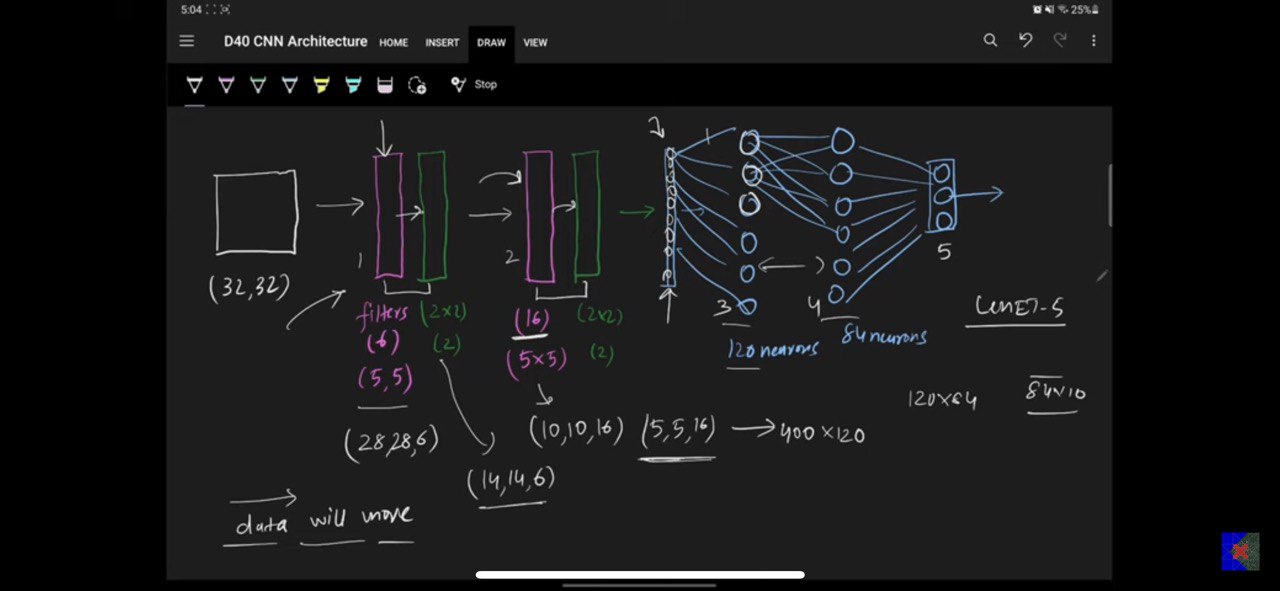 5:04 25%
D40 CNN Architecture HOME INSERT DRAW VIEW
Stop
(32,32)
1
filters
(6)
(5,5)
(28,28,6)
(2×2)
(2)
(14,14,6)
2
(16)
(5×5)
(2×2)
(2)
(10,10,16) (5,5,16) → 400×120
3
120 neurons
4
84 neurons
5
LeNET-5
120×84
84×10
data will move